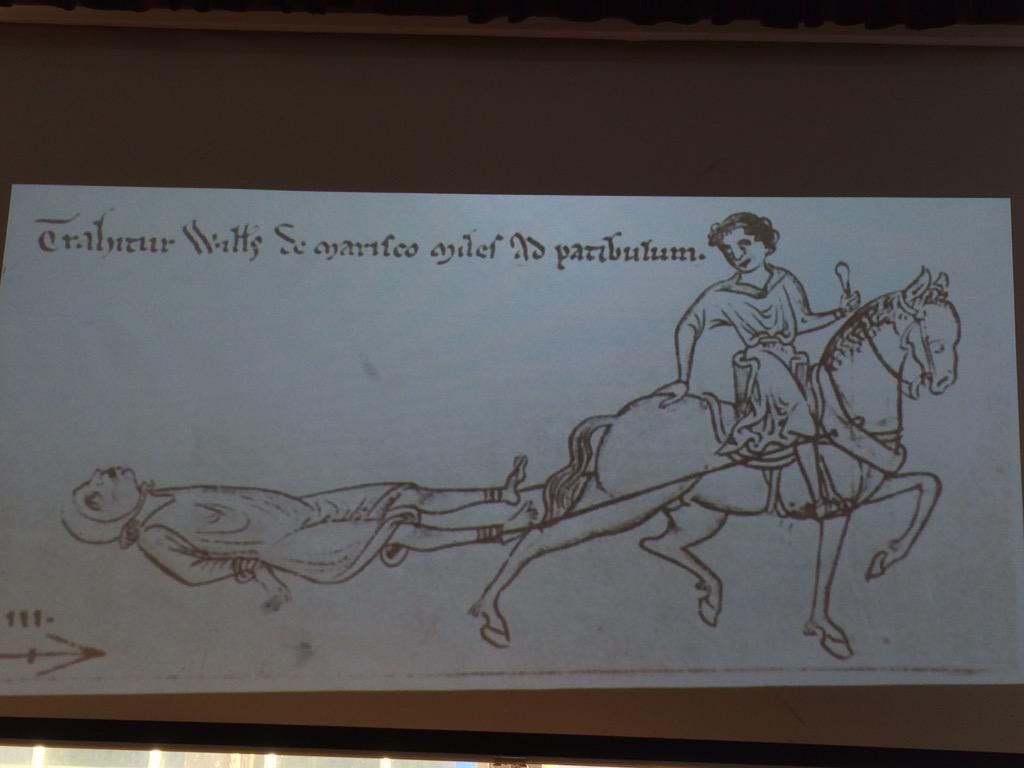 Trahitur Wills de marisco miles Ad patibulum.
III.